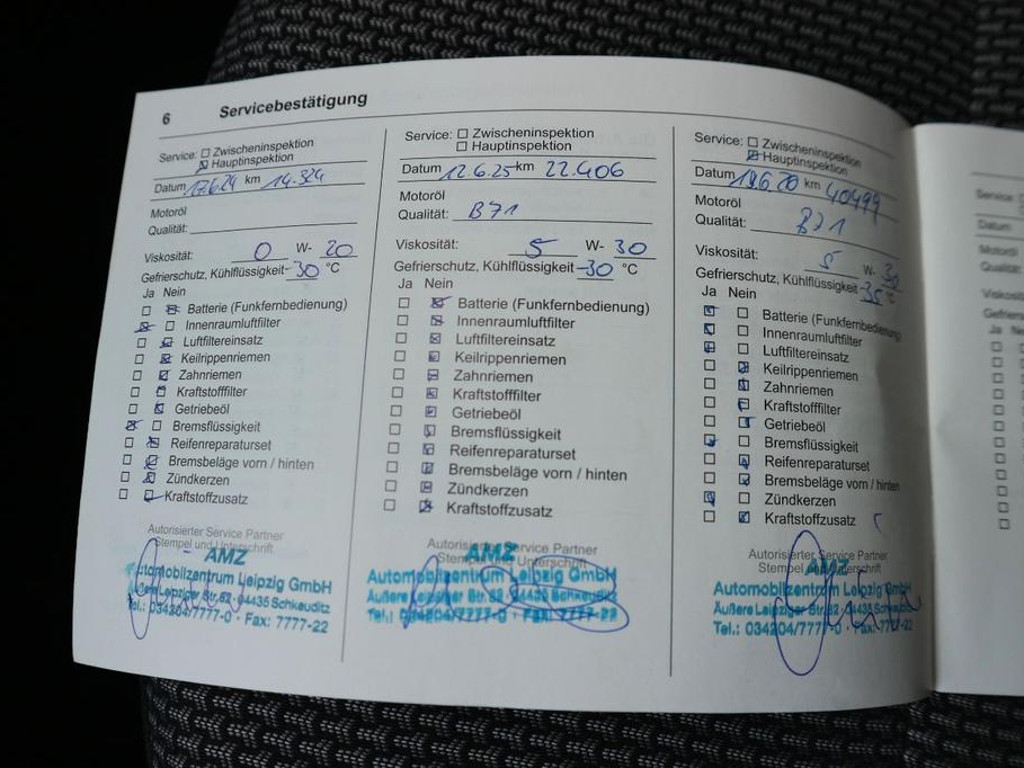 6 Servicebestätigung
Service: ☐ Zwischeninspektion
☒ Hauptinspektion
Datum 17.6.24 km 14.324
Motoröl
Qualität:
Viskosität: 0 W- 20
Gefrierschutz, Kühlflüssigkeit -30 °C
Ja Nein
☐ ☒ Batterie (Funkfernbedienung)
☒ ☐ Innenraumluftfilter
☐ ☒ Luftfiltereinsatz
☐ ☒ Keilrippenriemen
☐ ☒ Zahnriemen
☐ ☒ Kraftstofffilter
☐ ☒ Getriebeöl
☒ ☐ Bremsflüssigkeit
☐ ☒ Reifenreparaturset
☐ ☒ Bremsbeläge vorn / hinten
☐ ☒ Zündkerzen
☐ ☒ Kraftstoffzusatz
Autorisierter Service Partner
Stempel und Unterschrift
AMZ
Automobilzentrum Leipzig GmbH
Äußere Leipziger Str. 82 · 04435 Schkeuditz
Tel.: 034204/7777-0 · Fax: 7777-22
Service: ☐ Zwischeninspektion
☐ Hauptinspektion
Datum 12.6.25 km 22.406
Motoröl
Qualität: B71
Viskosität: 5 W- 30
Gefrierschutz, Kühlflüssigkeit -30 °C
Ja Nein
☐ ☒ Batterie (Funkfernbedienung)
☐ ☒ Innenraumluftfilter
☐ ☒ Luftfiltereinsatz
☐ ☒ Keilrippenriemen
☐ ☒ Zahnriemen
☐ ☒ Kraftstofffilter
☐ ☒ Getriebeöl
☐ ☒ Bremsflüssigkeit
☐ ☒ Reifenreparaturset
☐ ☒ Bremsbeläge vorn / hinten
☐ ☒ Zündkerzen
☐ ☒ Kraftstoffzusatz
Autorisierter Service Partner
Stempel und Unterschrift
AMZ
Automobilzentrum Leipzig GmbH
Äußere Leipziger Str. 82 · 04435 Schkeuditz
Tel.: 034204/7777-0 · Fax: 7777-22
Service: ☐ Zwischeninspektion
☒ Hauptinspektion
Datum km 40499
Motoröl
Qualität: B71
Viskosität: 5 W- 30
Gefrierschutz, Kühlflüssigkeit -35 °C
Ja Nein
☒ ☐ Batterie (Funkfernbedienung)
☒ ☐ Innenraumluftfilter
☒ ☐ Luftfiltereinsatz
☐ ☒ Keilrippenriemen
☐ ☒ Zahnriemen
☐ ☒ Kraftstofffilter
☐ ☒ Getriebeöl
☒ ☐ Bremsflüssigkeit
☐ ☒ Reifenreparaturset
☐ ☒ Bremsbeläge vorn / hinten
☒ ☐ Zündkerzen
☐ ☒ Kraftstoffzusatz
Autorisierter Service Partner
Stempel und Unterschrift
AMZ
Automobilzentrum Leipzig GmbH
Äußere Leipziger Str. 82 · 04435 Schkeuditz
Tel.: 034204/7777-0 · Fax: 7777-22
Service
Datum
Motoröl
Qualität:
Ja